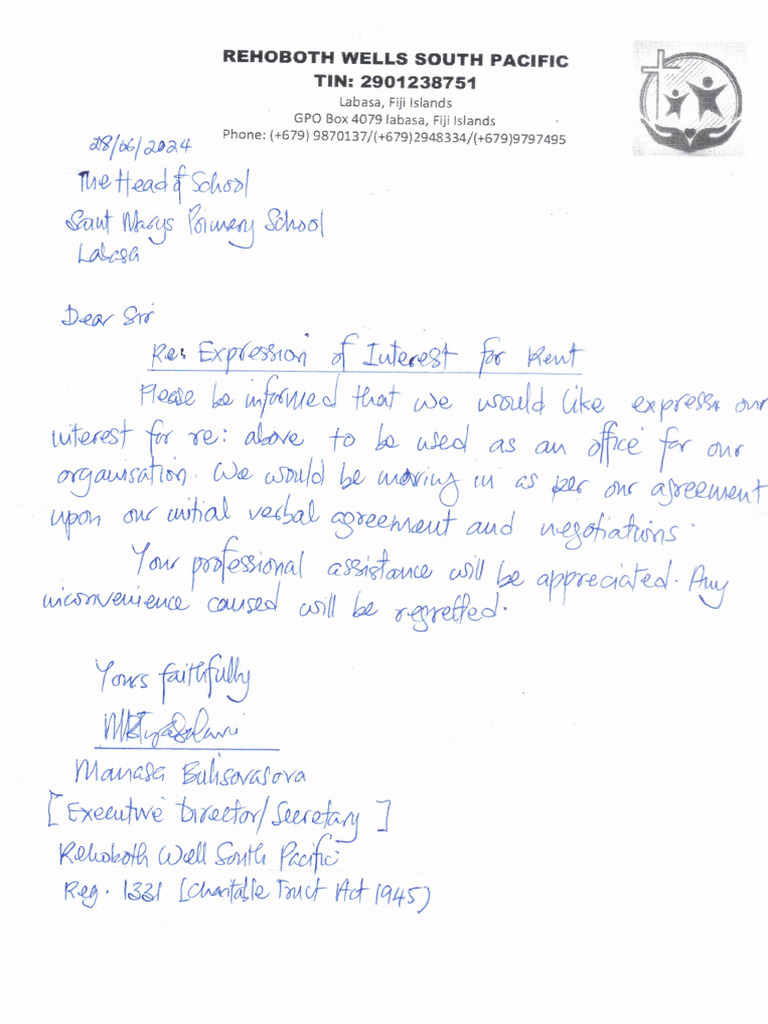 REHOBOTH WELLS SOUTH PACIFIC
TIN: 2901238751
Labasa, Fiji Islands
GPO Box 4079 labasa, Fiji Islands
Phone: (+679) 9870137/(+679)2948334/(+679)9797495
28/06/2024
The Head of School
Saint Marys Primary School
Labasa
Dear Sir
Re: Expression of Interest for Rent
Please be informed that we would like express our
interest for re: above to be used as an office for our
organisation. We would be moving in as per our agreement
upon our initial verbal agreement and negotiations.
Your professional assistance will be appreciated. Any
inconvenience caused will be regretted.
Yours faithfully
Manasa Bulisovasova
[Executive Director/Secretary]
Rehoboth Well South Pacific
Reg. 1331 [Charitable Trust Act 1945)